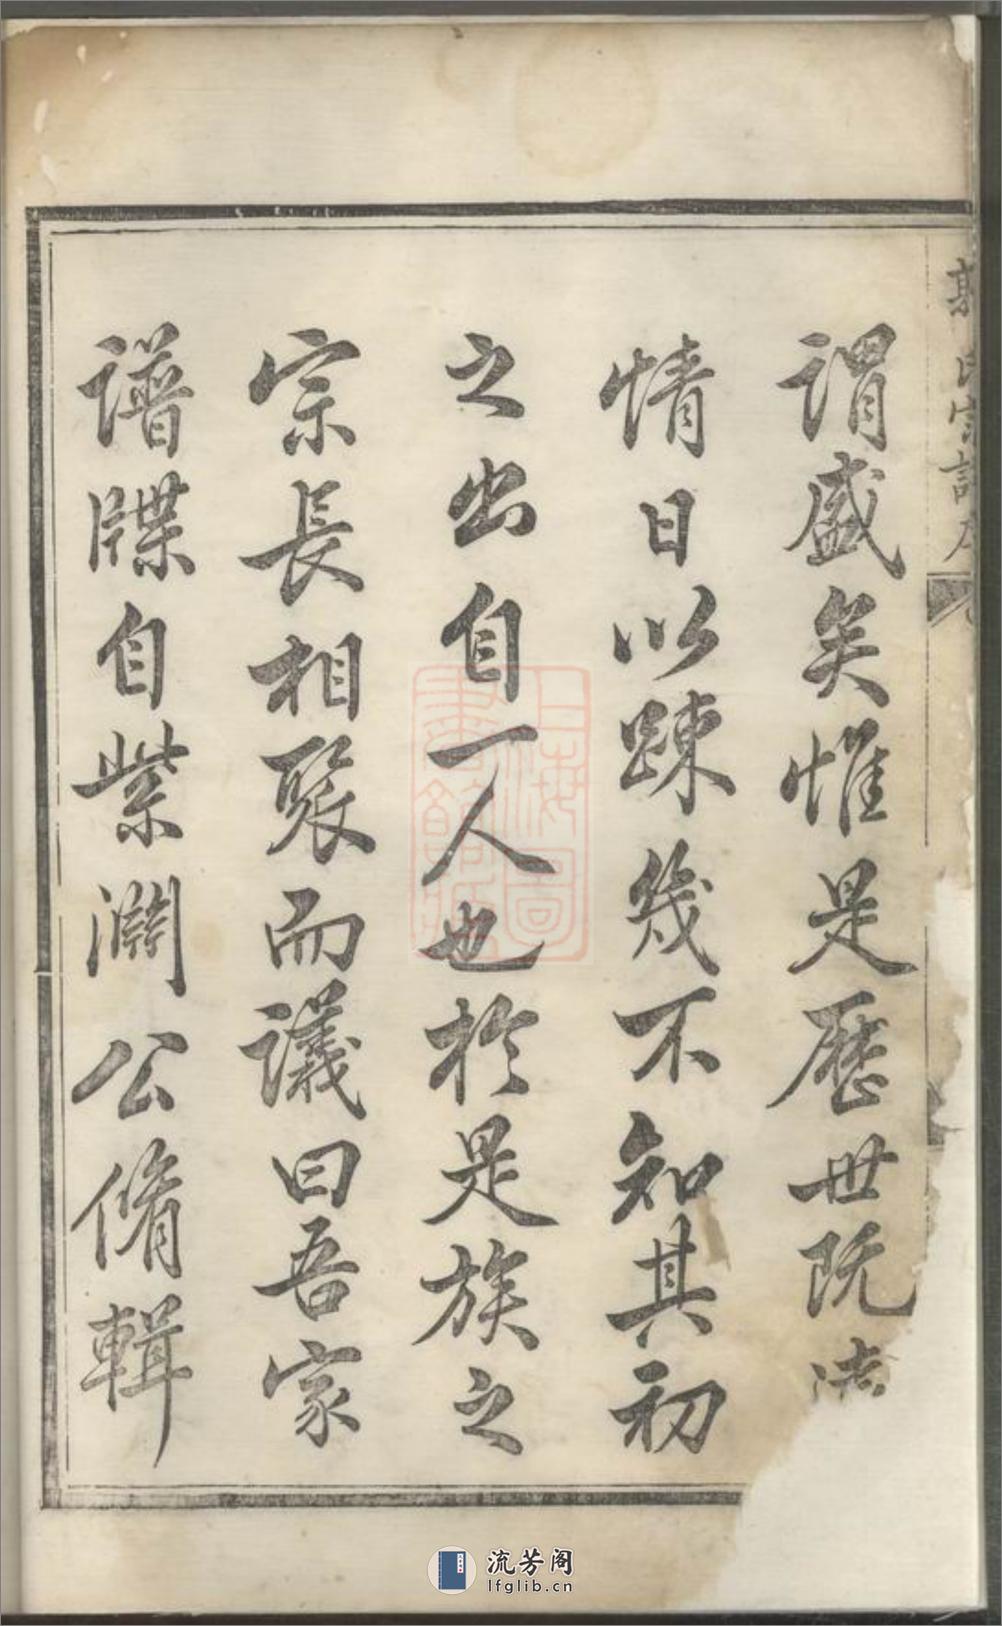 氏宗譜序
謂盛矣惟是歷世既
情日以踈幾不知其初
之出自一人也於是族之
宗長相聚而議曰吾家
譜牒自紫淵公脩輯
上海圖
書館藏
流芳阁
lfglib.cn